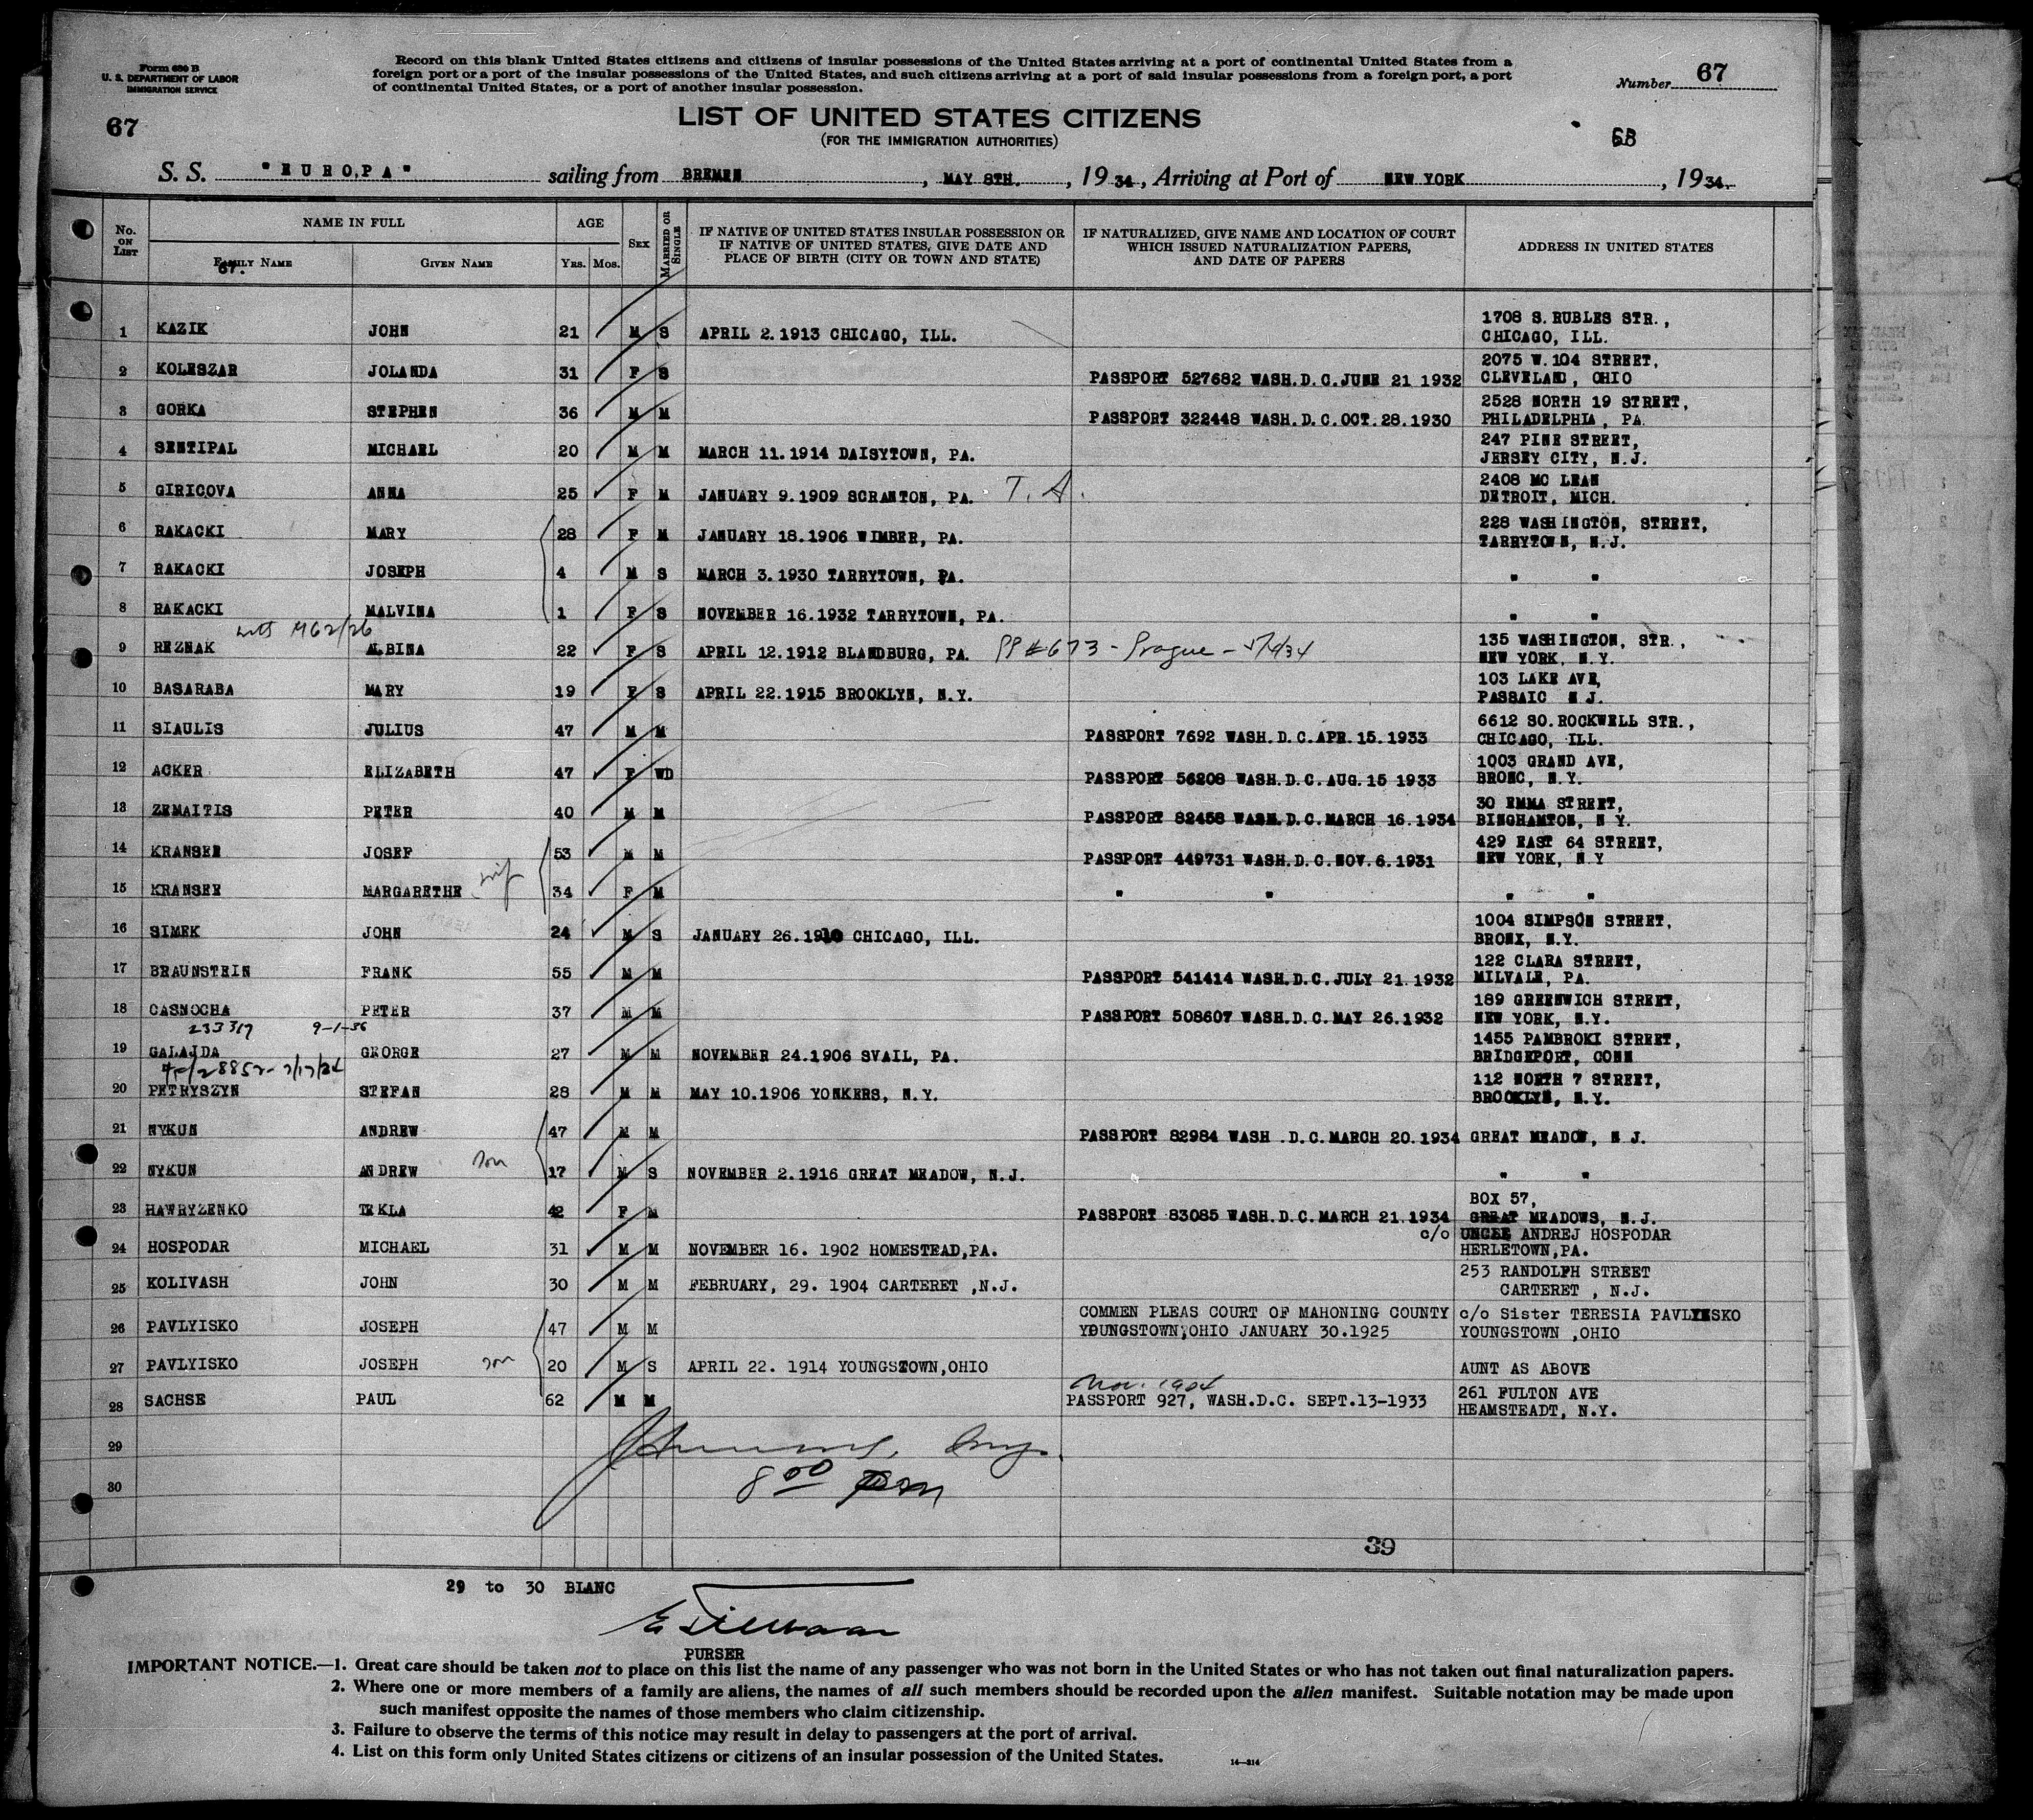 Form 630 B
U. S. DEPARTMENT OF LABOR
IMMIGRATION SERVICE
Record on this blank United States citizens and citizens of insular possessions of the United States arriving at a port of continental United States from a
foreign port or a port of the insular possessions of the United States, and such citizens arriving at a port of said insular possessions from a foreign port, a port
of continental United States, or a port of another insular possession.
Number 67
67
LIST OF UNITED STATES CITIZENS
(FOR THE IMMIGRATION AUTHORITIES)
S. S. "EUROPA" sailing from BREMEN, MAY 8TH., 1934, Arriving at Port of NEW YORK, 1934.
No. ON LIST NAME IN FULL AGE SEX MARRIED OR SINGLE IF NATIVE OF UNITED STATES INSULAR POSSESSION OR IF NATIVE OF UNITED STATES, GIVE DATE AND PLACE OF BIRTH (CITY OR TOWN AND STATE) IF NATURALIZED, GIVE NAME AND LOCATION OF COURT WHICH ISSUED NATURALIZATION PAPERS, AND DATE OF PAPERS ADDRESS IN UNITED STATES
FAMILY NAME GIVEN NAME YRS. MOS.
67.
1 KAZIK JOHN 21 M S APRIL 2.1913 CHICAGO, ILL. 1708 S. RUBLES STR., CHICAGO, ILL.
2 KOLESZAR JOLANDA 31 F S PASSPORT 527682 WASH.D.C.JUNE 21 1932 2075 W.104 STREET, CLEVELAND, OHIO
3 GORKA STEPHEN 36 M M PASSPORT 322448 WASH.D.C.OCT.28.1930 2528 NORTH 19 STREET, PHILADELPHIA, PA.
4 SENTIPAL MICHAEL 20 M M MARCH 11.1914 DAISYTOWN, PA. 247 PINE STREET, JERSEY CITY, N.J.
5 GIRICOVA ANNA 25 F M JANUARY 9.1909 SCRANTON, PA. T. A. 2408 MC LEAN DETROIT, MICH.
6 RAKACKI MARY 28 F M JANUARY 18.1906 WIMBER, PA. 228 WASHINGTON, STREET, TARRYTOWN, N.J.
7 RAKACKI JOSEPH 4 M S MARCH 3.1930 TARRYTOWN, PA. " "
8 RAKACKI MALVINA 1 F S NOVEMBER 16.1932 TARRYTOWN, PA. " "
9 REZNAK ALBINA 22 F S APRIL 12.1912 BLANDBURG, PA. PP #673 - Prague - 135 WASHINGTON, STR., NEW YORK, N.Y.
10 BASARABA MARY 19 F S APRIL 22.1915 BROOKLYN, N.Y. 103 LAKE AVE, PASSAIC N J.
11 SIAULIS JULIUS 47 M M PASSPORT 7692 WASH.D.C.APR.15.1933 6612 SO.ROCKWELL STR., CHICAGO, ILL.
12 ACKER ELIZABETH 47 F WD PASSPORT 56208 WASH.D.C.AUG.15 1933 1003 GRAND AVE, BRONC, N.Y.
13 ZEMAITIS PETER 40 M M PASSPORT 82458 WASH.D.C.MARCH 16.1934 30 EMMA STREET, BINGHAMTON, N Y.
14 KRANSEE JOSEF 53 M M PASSPORT 449731 WASH.D.C.NOV.6.1931 429 EAST 64 STREET, NEW YORK, N.Y
15 KRANSEE MARGARETHE wif 34 F M " " " "
16 SIMEK JOHN 24 M S JANUARY 26.1910 CHICAGO, ILL. 1004 SIMPSON STREET, BRONX, N.Y.
17 BRAUNSTEIN FRANK 55 M M PASSPORT 541414 WASH.D.C.JULY 21.1932 122 CLARA STREET, MILVALE, PA.
18 CASNOCHA PETER 37 M M PASSPORT 508607 WASH.D.C.MAY 26.1932 189 GREENWICH STREET, NEW YORK, N.Y.
233317 9-1-36
19 GALAJDA GEORGE 27 M M NOVEMBER 24.1906 SVAIL, PA. 1455 PAMBROKI STREET, BRIDGEPORT, CONN
20 PETRYSZYN STEFAN 28 M M MAY 10.1906 YONKERS, N.Y. 112 NORTH 7 STREET, BROOKLYN, N.Y.
21 NYKUN ANDREW 47 M M PASSPORT 82984 WASH .D.C.MARCH 20.1934 GREAT MEADOW, N J.
22 NYKUN ANDREW son 17 M S NOVEMBER 2.1916 GREAT MEADOW, N.J. " "
23 HAWRYZENKO TEKLA 42 F M PASSPORT 83085 WASH.D.C.MARCH 21.1934 BOX 57, GREAT MEADOWS, N.J.
24 HOSPODAR MICHAEL 31 M M NOVEMBER 16. 1902 HOMESTEAD,PA. c/o UNCLE ANDREJ HOSPODAR HERLETOWN,PA.
25 KOLIVASH JOHN 30 M M FEBRUARY, 29. 1904 CARTERET ,N.J. 253 RANDOLPH STREET CARTERET , N.J.
26 PAVLYISKO JOSEPH 47 M M COMMEN PLEAS COURT OF MAHONING COUNTY YOUNGSTOWN,OHIO JANUARY 30.1925 c/o Sister TERESIA PAVLYISKO YOUNGSTOWN ,OHIO
27 PAVLYISKO JOSEPH son 20 M S APRIL 22. 1914 YOUNGSTOWN,OHIO AUNT AS ABOVE
28 SACHSE PAUL 62 M M Nov. 1904 PASSPORT 927, WASH.D.C. SEPT.13-1933 261 FULTON AVE HEAMSTEADT, N.Y.
29
30
8 00 pm
39
29 to 30 BLANC
PURSER
IMPORTANT NOTICE.—1. Great care should be taken not to place on this list the name of any passenger who was not born in the United States or who has not taken out final naturalization papers.
2. Where one or more members of a family are aliens, the names of all such members should be recorded upon the alien manifest. Suitable notation may be made upon
such manifest opposite the names of those members who claim citizenship.
3. Failure to observe the terms of this notice may result in delay to passengers at the port of arrival.
4. List on this form only United States citizens or citizens of an insular possession of the United States.
14—214